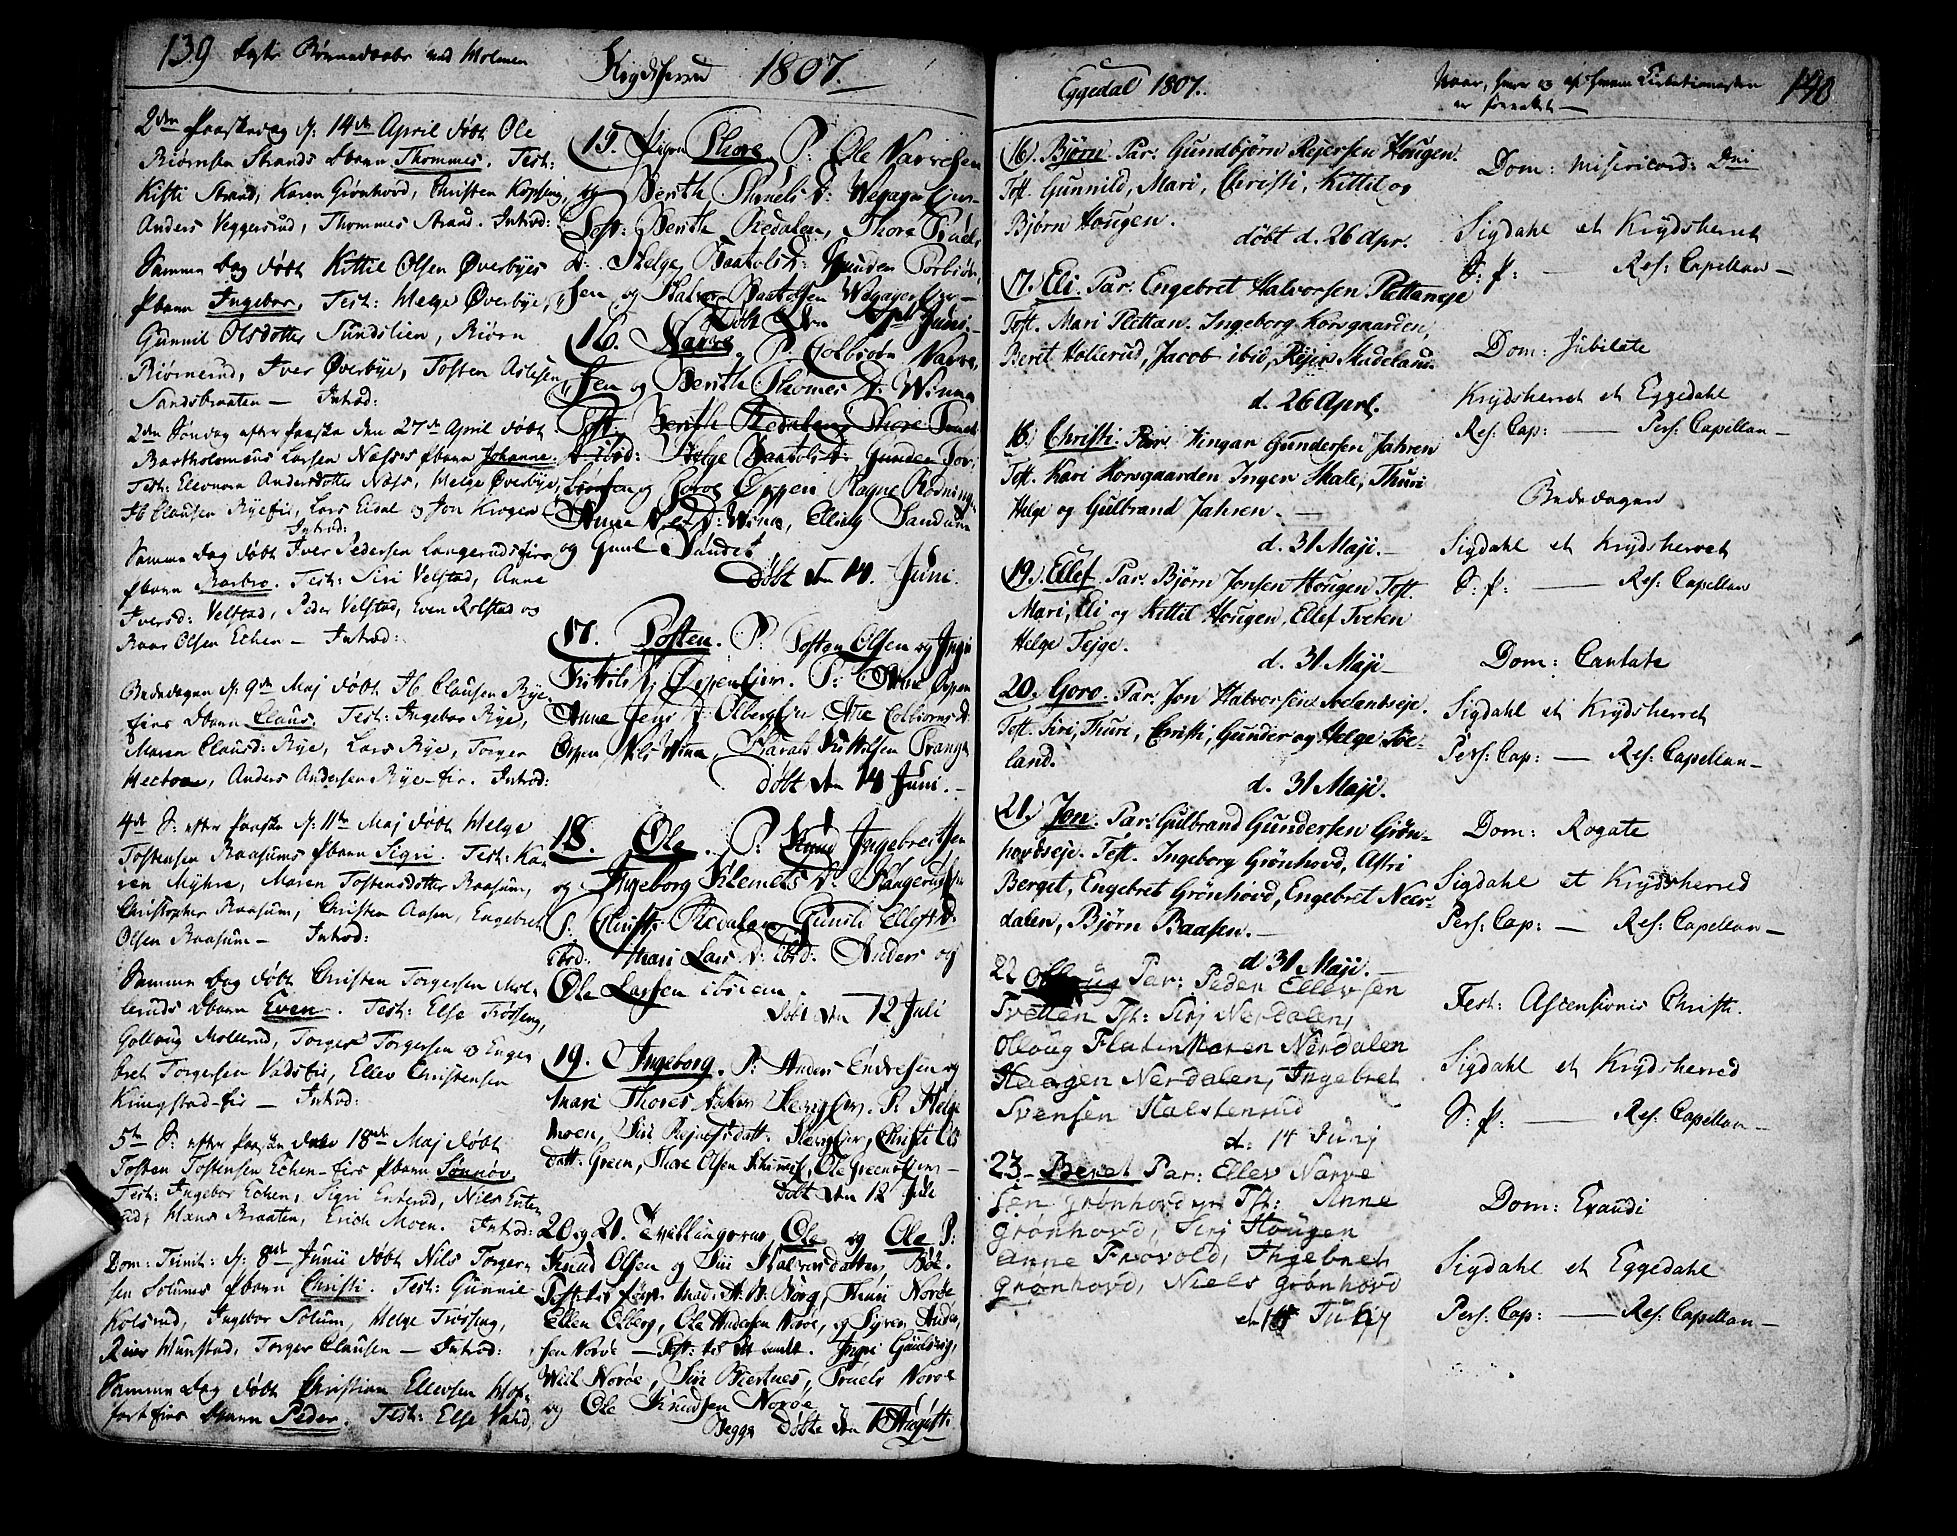 139 Børnedaabe ved Holmen
2den Paaskedag d: 14de April døbt Ole
Biørnsen Strands dbarn Thommes. Test:
Kisti Strand, Karen Grønhovd, Christen Kopseng,
Anders Veggersrud, Thommes Strand. Introd:
Samme Dag døbt Kittil Olsen Øverbyes
pbarn Ingebor, Test: Helge Øverbye,
Gunnil Olsdotter Sundslien, Biørn
Biørnerud, Iver Øverbye, Tosten Aslesen
Sandsbraaten — Introd:
2den Søndag efter Paaske den 27de April døbt
Bartholomæus Larsen Næsses pbarn Johanne.
Test: Eleonora Andersdotter Næss, Helge Øverbye,
H. Clausen Ryefie, Lars Eidal og Jon Krogen
Introd:
Samme Dag døbt Iver Pedersen Langerudsfies
pbarn Barbro. Test: Siri Velstad, Anne
Iversd: Velstad, Peder Velstad, Even Rolstad og
Roar Olsen Echen — Introd:
Bededagen d: 9de Maj døbt H. Clausen Rye-
fies dbarn Claus. Test: Ingebor Rye,
Maren Clausd: Rye, Lars Rye, Torger
Hectoen, Anders Andersen Rye-fie. Introd:
4de S: efter Paaske d: 11te Maj døbt Helge
Tostensen Raasums pbarn Sigri. Test: Ka-
ren Myhre, Maren Tostensdotter Raasum,
Christopher Raasum, Christen Aasen, Engebret
Olsen Raasum — Introd:
Samme Dag døbt Christen Torgersen Mol-
leruds dbarn Even. Test: Else Frøsseng,
Gollaug Mollerud, Torger Torgersen og Enge-
bret Torgersen Vadsfie, Ellev Christensen
Kringstad-fie — Introd:
5te S: efter Paaske den 18de Maj døbt
Tosten Tostensen Echen-fies pbarn Sønnøv.
Test: Ingebor Echen, Sigri Enterud, Nils Ente-
rud, Hans Braaten, Erich Moen. Introd:
Dom: Trinit: d: 8de Junii døbt Nils Torger-
sen Solums pbarn Christi. Test: Gunnil
Kolsrud, Ingebor Solum, Helge Frøsseng,
Reier Hunstad, Torger Clausen — Introd:
Samme Dag døbt Christian Ellevsen Hof-
fartfies dbarn Peder. Test: Else Vahd,
Krydsherred 1807.
15. Pigen Thore P: Ole Narvesen
og Berith Thorels D:
Test: Berith Redalen, Thora Truels
D: Helge Baatols D: Gunden Torbiørn-
sen og Halvor Baatolsen
Døbt den 7de Juni.
16. Narve P. Colbiørn Narve-
sen og Berith Thomes D: Winna
Test: Berith Redalen, Thore Truels
D ibid: Helge Baatols D: Gunden Tor-
biørnsen Goroe Oppen Ragne Rødning
Anne D: Winna, Elling Sandum
og Gunil Sandes
Døbt den 14. Juni.
17. Tosten. P: Tosten Olsen og Ingri
Kittils D: Oppenejer. T: Anne Oppen
Anne Jens D: Olbergejer. Are Colbiørns D:
Oppen Nils Winna, Harald Kittilsen
døbt den 14 Juni.—
18. Ole. P: Knud Ingebretsen
og Ingeborg Klemets D:
T. Christi Redalen, Gunild Ellefs D:
ibid: Mari Lars D: ibid. Anders og
Ole Larsen ibidem.
døbt den 12 Juli
19. Ingeborg. P: Anders Endresen og
Mari Thores T: Helge
Moen, Siri Christi Ols
datt: Green, Thore Olsen Ole Greenejer—
døbt den 12 Juli
20 og 21. Tvillingerne Ole og Ole P:
Knud Olsen og Siri Halvorsdatter Bøe.
Test: Thuri Norøe
Ellen Olberg, Ole Andersen Norøe, og Siver Ander-
sen Norøe —
Norøe, Siri Bientnes, Truels Norøe
og Ole Knudsen Norøe
Begge døbte den August:
Eggedal 1807.
16). Bjørn. Par: Gundbjørn Rejersen Hougen.
Test. Gunnild, Mari, Christi, Kittil og
Bjørn Hougen.
døbt d. 26 Apr.
17. Eli. Par. Engebret Halvorsen Plettaneje
Test. Mari Plettan. Ingeborg Korsgaarden,
Berit Hollerud, Jacob ibid, Rejer Skadeland.
d. 26 Apri.
18. Christi. Par. Hingar Gundersen Jahren
Test. Kari Korsgaarden Ingen Skale, Thuri
Helge og Gulbrand Jahren. —
d. 31 Maji.—
19. Ellef. Par. Bjørn Jonsen Hougen Test.
Mari, Eli og Kittil Hougen, Ellef Tveten
Helge Tejge.
d. 31 Maji—
20. Goro. Par. Jon Halvorsen Soelandseje.
Test. Siri, Thuri, Christi, Gunder og Helge Soe-
land.
d. 31 Maji.
21. Jon. Par. Gulbrand Gundersen Grøn-
hovdseje. Test. Ingeborg Grønhovd, Astri
Berget, Engebret Grønhovd, Engebret Neer-
dalen, Bjørn Baasen.—
d. 31 Maji. —
22 Olloug Par: Peder Ellevsen
Tvetten Tst: Sirj Nerdalen,
Olloug Flaten Maren Nerdalen
Haagen Nerdalen, Ingebret
Svensen Halstensrud
d: 14 Junj
23. Beret Par: Ellev Narve
sen Grønhovd Tst: Anne
Grønhovd, Sirj Hougen
Anne Frøvold, Ingebret
Grønhovd, Niels Grønhovd
Julij
140
Naar, hvor og af hvem
er prædiket —
Dom: Misericord: Dni
Sigdahl et Krydsherret
S: P: — Res: Capellan —
Dom: Jubilate
Krydsherret et Eggedahl
Res: Cap: — Pers: Capellan —
Bededagen
Sigdahl et Krydsherret
S: P: — Res: Capellan
Dom: Cantate
Sigdahl et Krydsherret
Pers: Cap: — Res: Capellan —
Dom: Rogate
Sigdahl et Krydsherred
Pers: Cap: — Res: Capellan —
Fest: Ascensionis Christi.
Sigdahl et Krydsherred
S: P: — Res: Capellan —
Dom: Exaudi
Sigdahl et Eggedahl
Pers: Cap: — Res: Capellan —